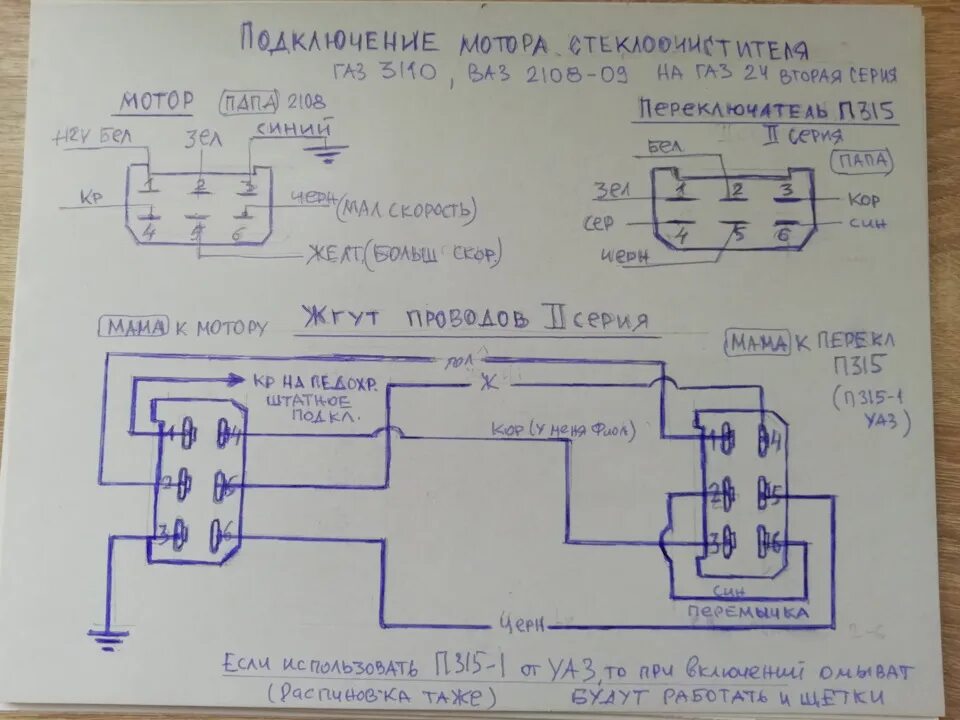 ПОДКЛЮЧЕНИЕ МОТОРА СТЕКЛООЧИСТИТЕЛЯ
ГАЗ 3110, ВАЗ 2108-09 НА ГАЗ 24 ВТОРАЯ СЕРИЯ
МОТОР ПАПА 2108
+12V БЕЛ ЗЕЛ СИНИЙ
1 2 3
КР ЧЕРН (МАЛ СКОРОСТЬ)
4 5 6
ЖЕЛТ (БОЛЬШ СКОР.)
ПЕРЕКЛЮЧАТЕЛЬ П315
II СЕРИЯ
БЕЛ ПАПА
ЗЕЛ 1 2 3 КОР
СЕР 4 5 6 СИН
ЧЕРН
МАМА К МОТОРУ ЖГУТ ПРОВОДОВ II СЕРИЯ
МАМА К ПЕРЕКЛ
П315
(П315-1
УАЗ)
КР НА ПЕДОХР.
ШТАТНОЕ
ПОДКЛ.
Ж
КОР (У МЕНЯ ФИОЛ)
1 4
2 5
3 6
1 4
2 5
3 6
СИН
ПЕРЕМЫЧКА
ЧЕРН
ЕСЛИ ИСПОЛЬЗОВАТЬ П315-1 ОТ УАЗ, ТО ПРИ ВКЛЮЧЕНИЙ ОМЫВАТ
(РАСПИНОВКА ТАЖЕ) БУДУТ РАБОТАТЬ И ЩЕТКИ